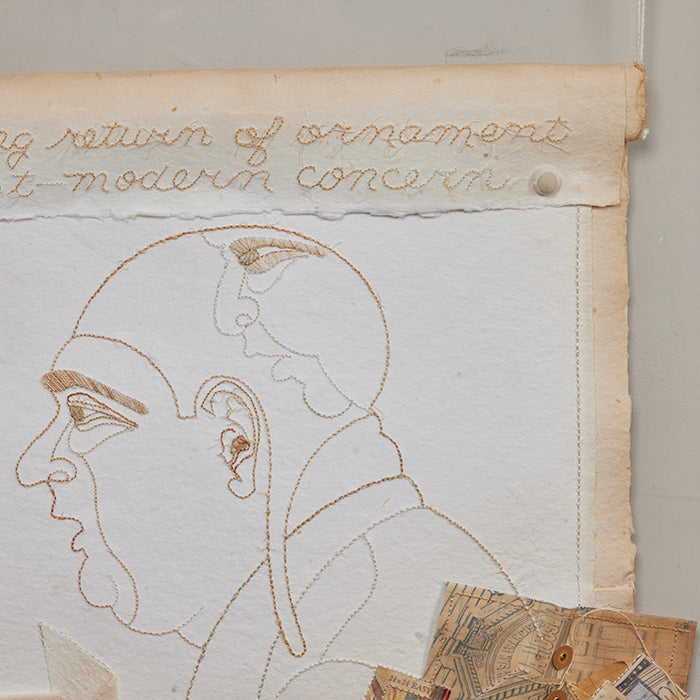 ng return of ornament
t-modern concern